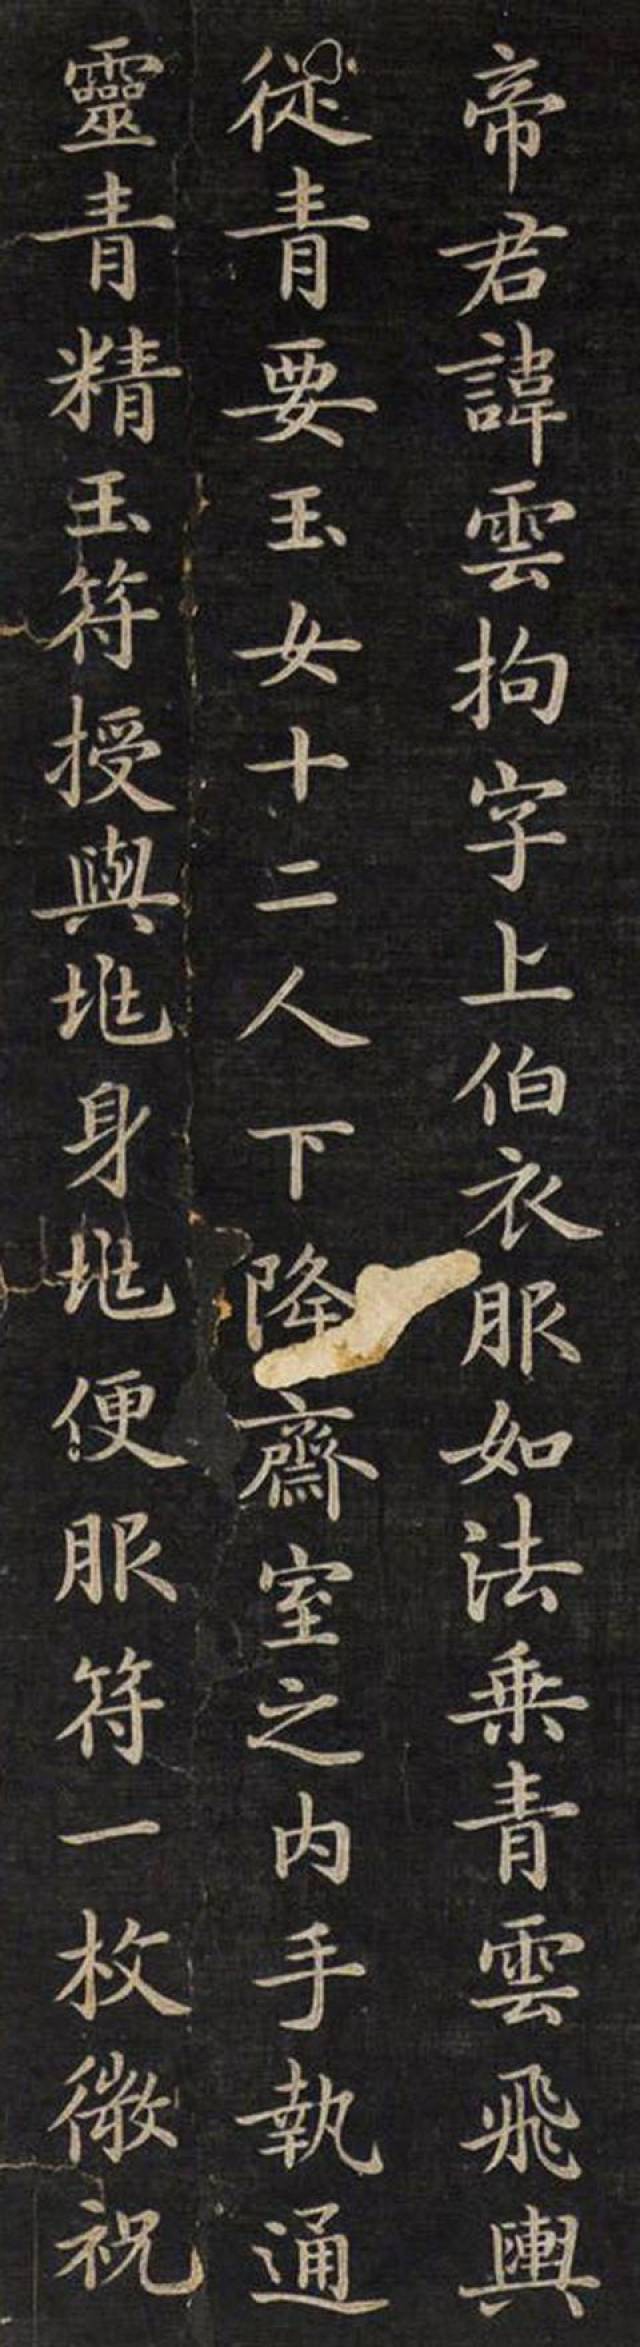 帝君諱雲拘字上伯衣服如法乗青雲飛輿
従青要玉女十二人下降齋室之内手執通
靈青精玉符授與兆身兆便服符一枚微祝